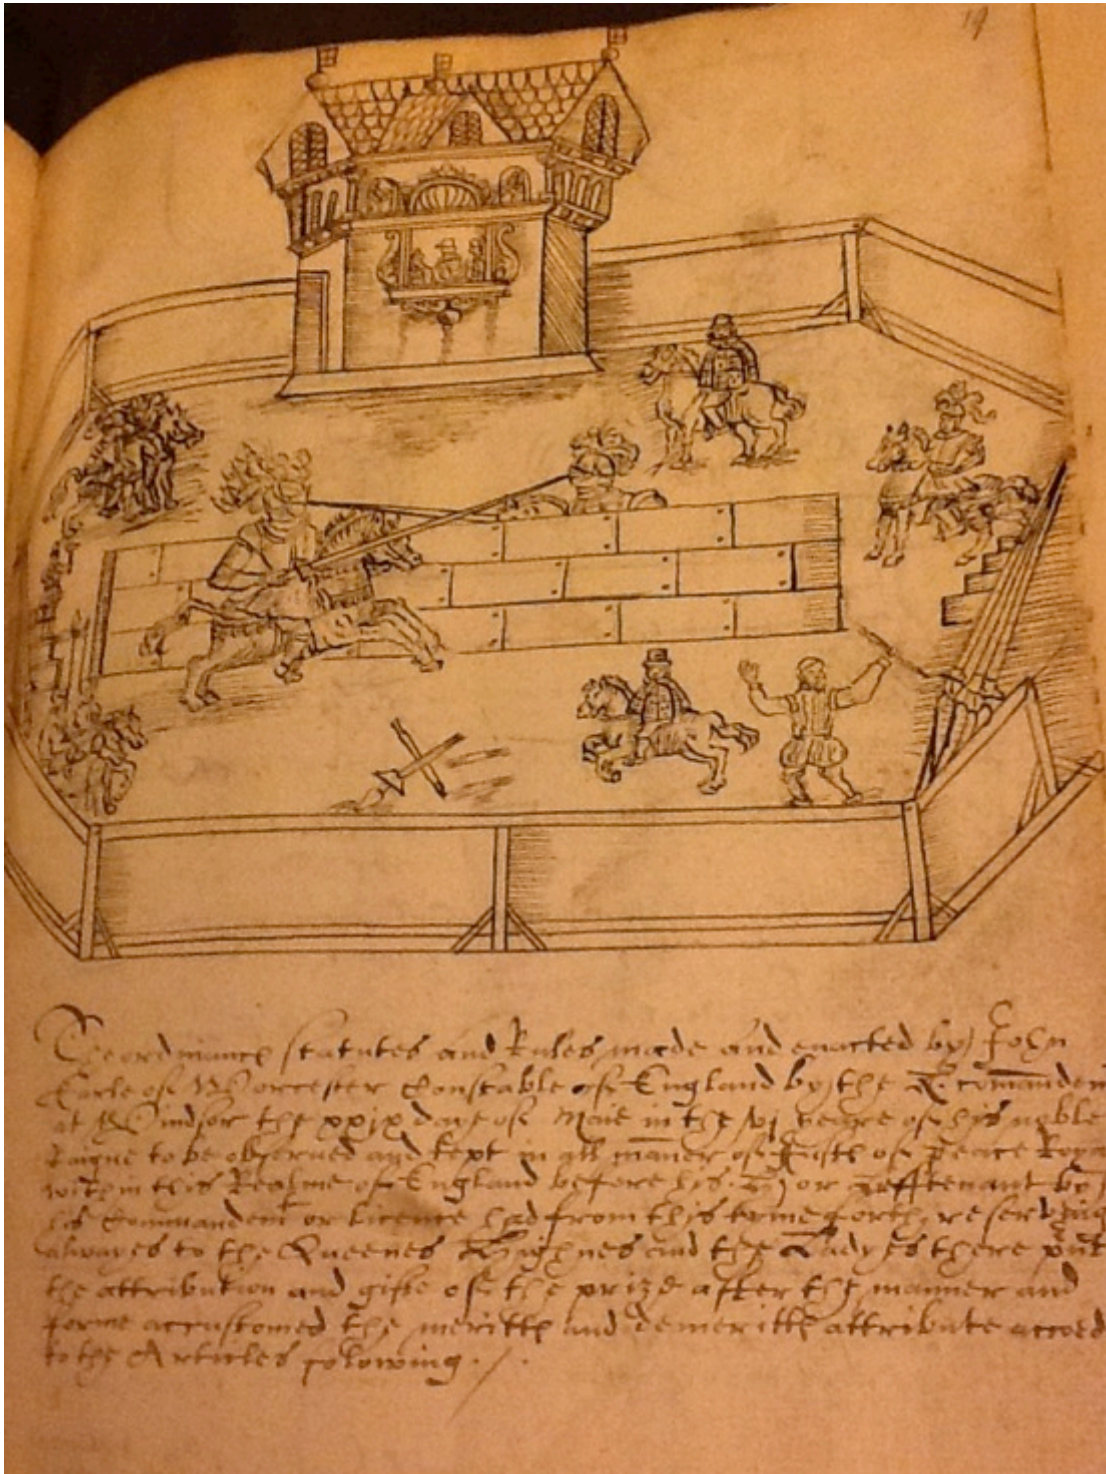 19
The ordinance statutes and Rules made and enacted by John
Earle of Worcester Constable of England by the K. comanden
at Windsor the xxix daye of Maie in the vj yeare of his noble
Raigne to be observed and kept in all maner of Justs of Peace Roya
within this Realme of England before his or Leifftenant by
his Commandemt or licence had from this tyme forth, reserving
alwayes to the Queenes Highnes and the Ladyes there pnt
the attribution and gifte of the prize after the manner and
forme accustomed the meritts and demeritts attribute accord
to the Articles following ./.